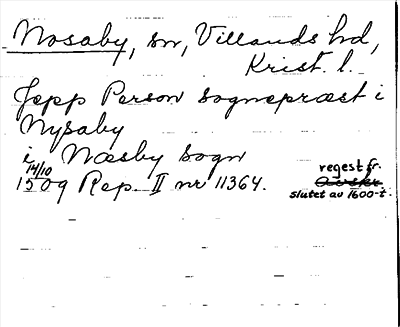 Nosaby, sn, Villands hd,
Krist. l.
Jepp Person sognepræst i
Nysaby
i Næsby sogn
14/10
1509 Rep. II nr 11364.
regest fr.
slutet av 1600-t.